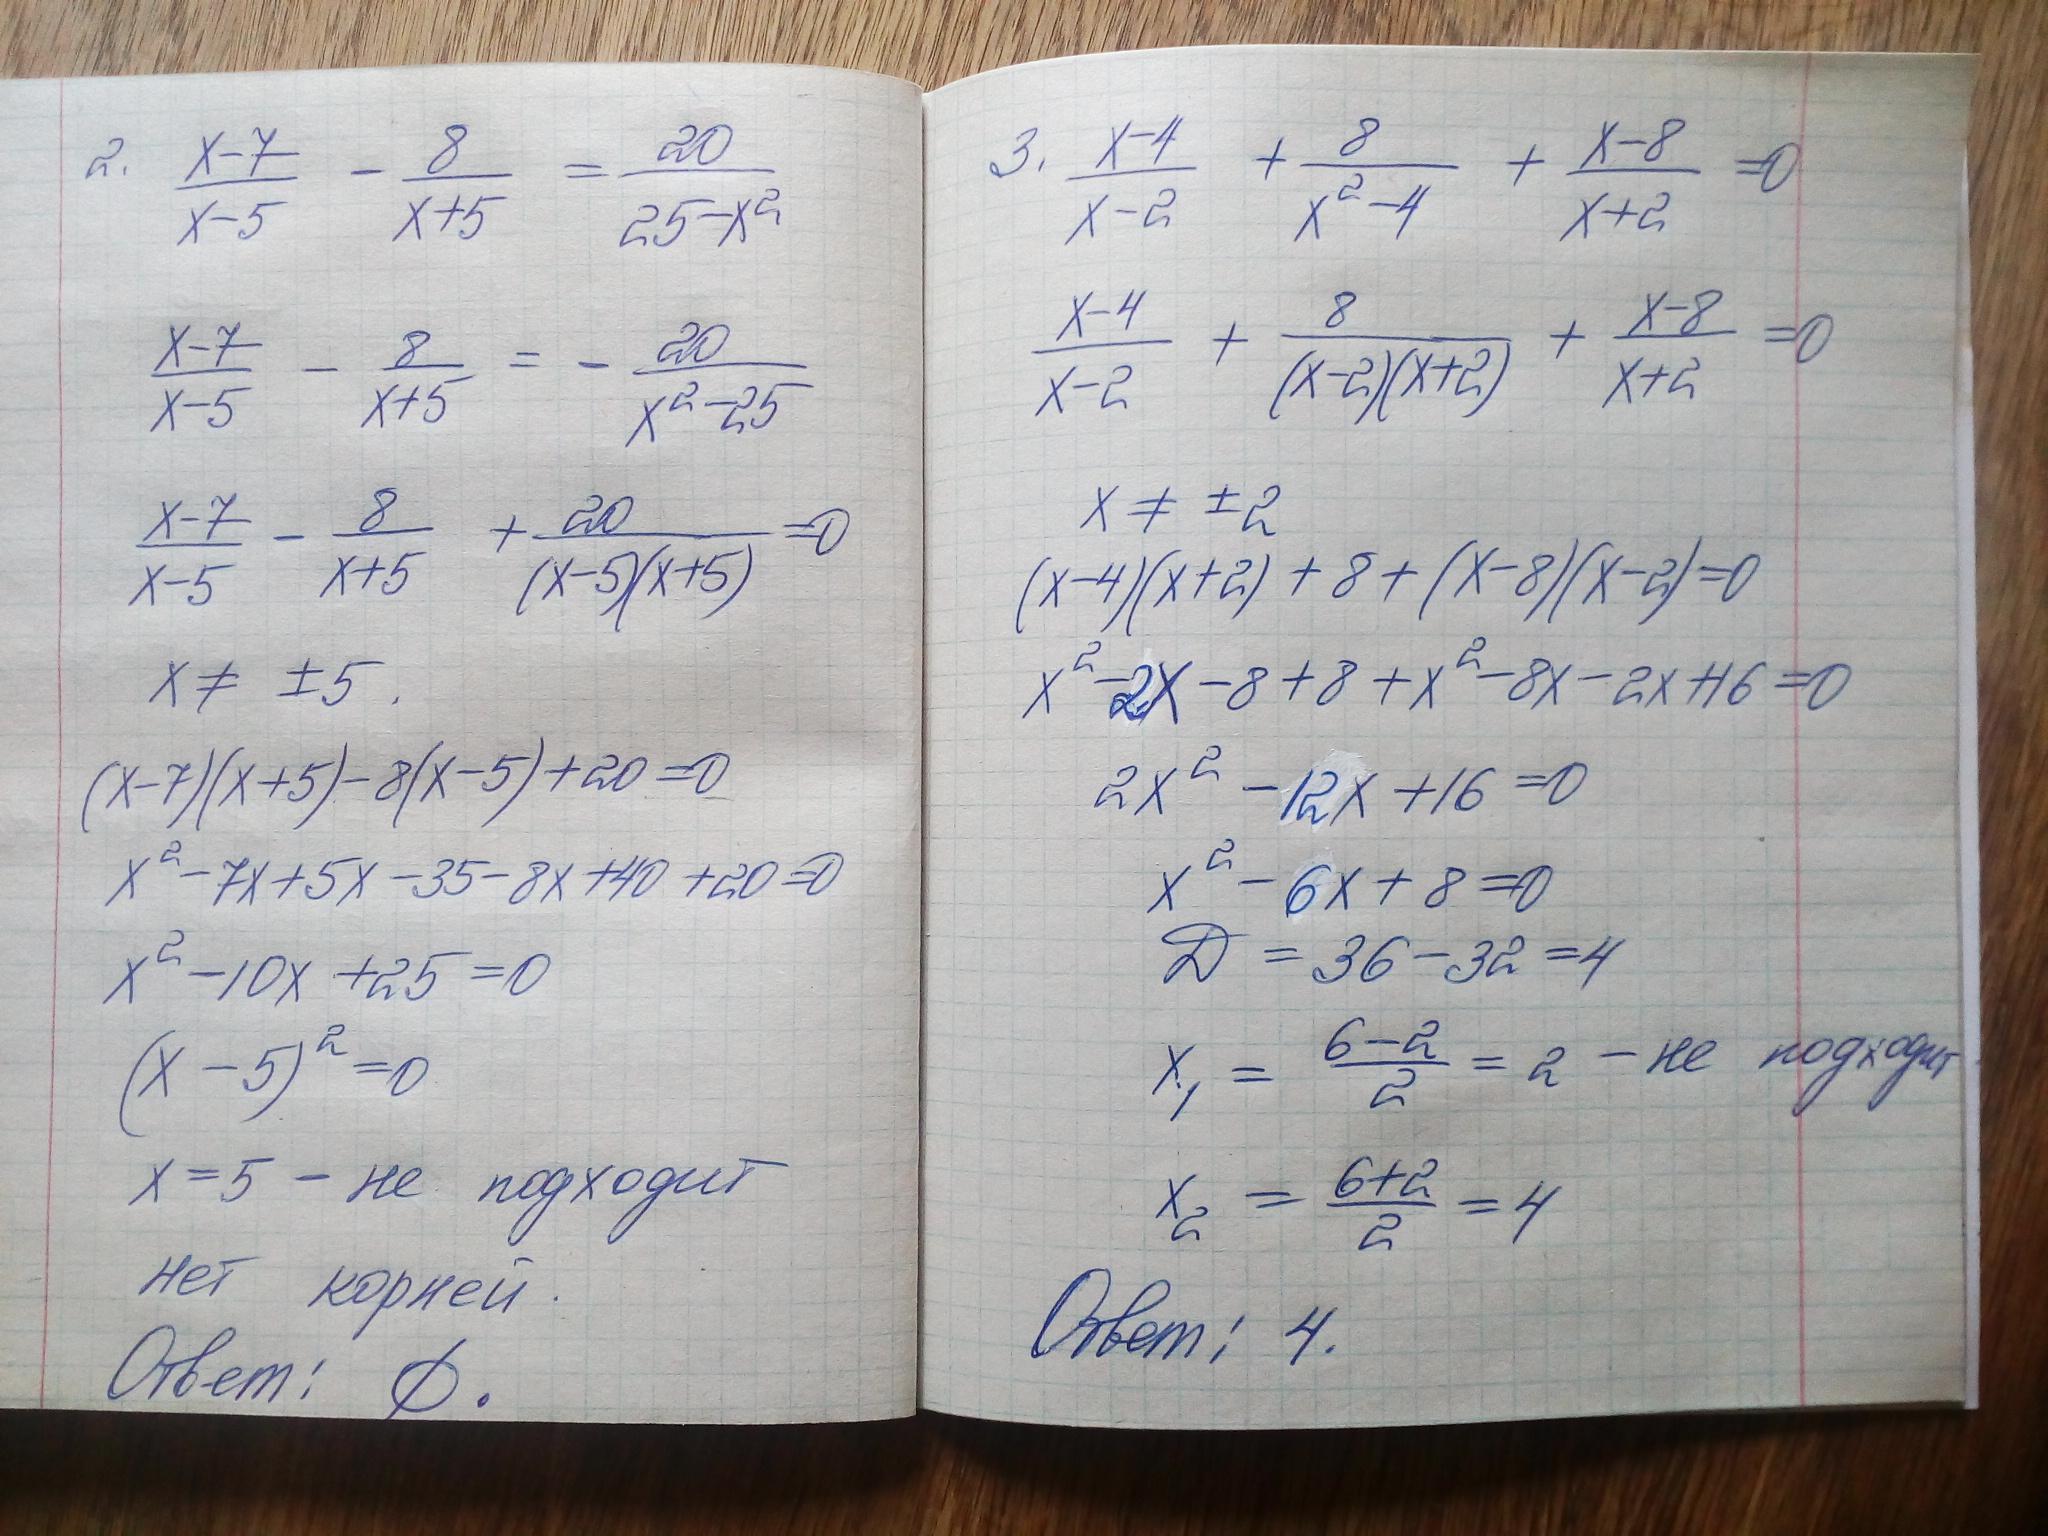 2. (x-7)/(x-5) - 8/(x+5) = 20/(25-x²)
(x-7)/(x-5) - 8/(x+5) = - 20/(x²-25)
(x-7)/(x-5) - 8/(x+5) + 20/((x-5)(x+5)) =0
x ≠ ±5.
(x-7)(x+5)-8(x-5)+20=0
x²-7x+5x-35-8x+40+20=0
x²-10x+25=0
(x-5)²=0
x=5 - не подходит
нет корней.
Ответ: ∅.
3. (x-4)/(x-2) + 8/(x²-4) + (x-8)/(x+2) =0
(x-4)/(x-2) + 8/((x-2)(x+2)) + (x-8)/(x+2) =0
x ≠ ±2
(x-4)(x+2)+8+(x-8)(x-2)=0
x²-2x-8+8+x²-8x-2x+16=0
2x²-12x+16=0
x²-6x+8=0
D=36-32=4
x₁ = (6-2)/2 = 2 - не подходит
x₂ = (6+2)/2 = 4
Ответ: 4.